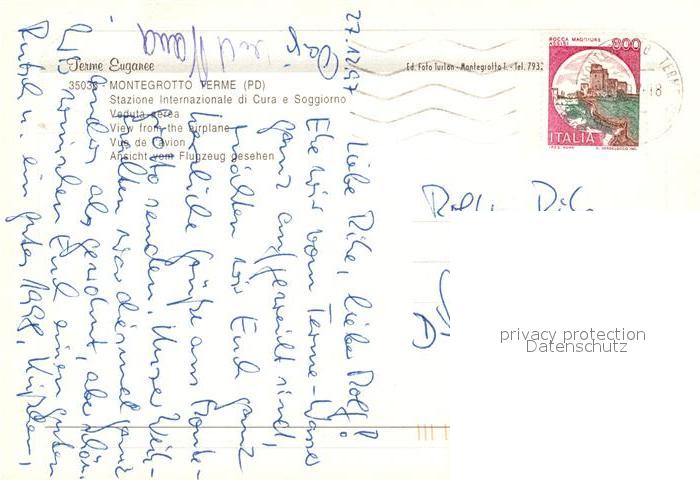 Terme Euganee
35036 - MONTEGROTTO TERME (PD)
Stazione Internazionale di Cura e Soggiorno
Veduta aerea
View from the airplane
Vue de l'avion
Ansicht vom Flugzeug gesehen
Ed. Foto Turlon - Montegrotto T. - Tel. 7932
ROCCA MAGGIORE
ASSISI
900
ITALIA
TERME
18
27.12.97
Liebe Rike, lieber Rolf!
Ehe wir vom Terme-Wasser
ganz aufgeweicht sind,
möchten wir Euch ganz
herzliche Grüße aus Monte-
grotto senden. Unser Weih-
nachten war diesmal ganz
anders als gewohnt, aber schön.
Wir wünschen Euch einen guten
Rutsch u. ein gutes 1998. Küßchen,
und
Rolf Rike
privacy protection
Datenschutz